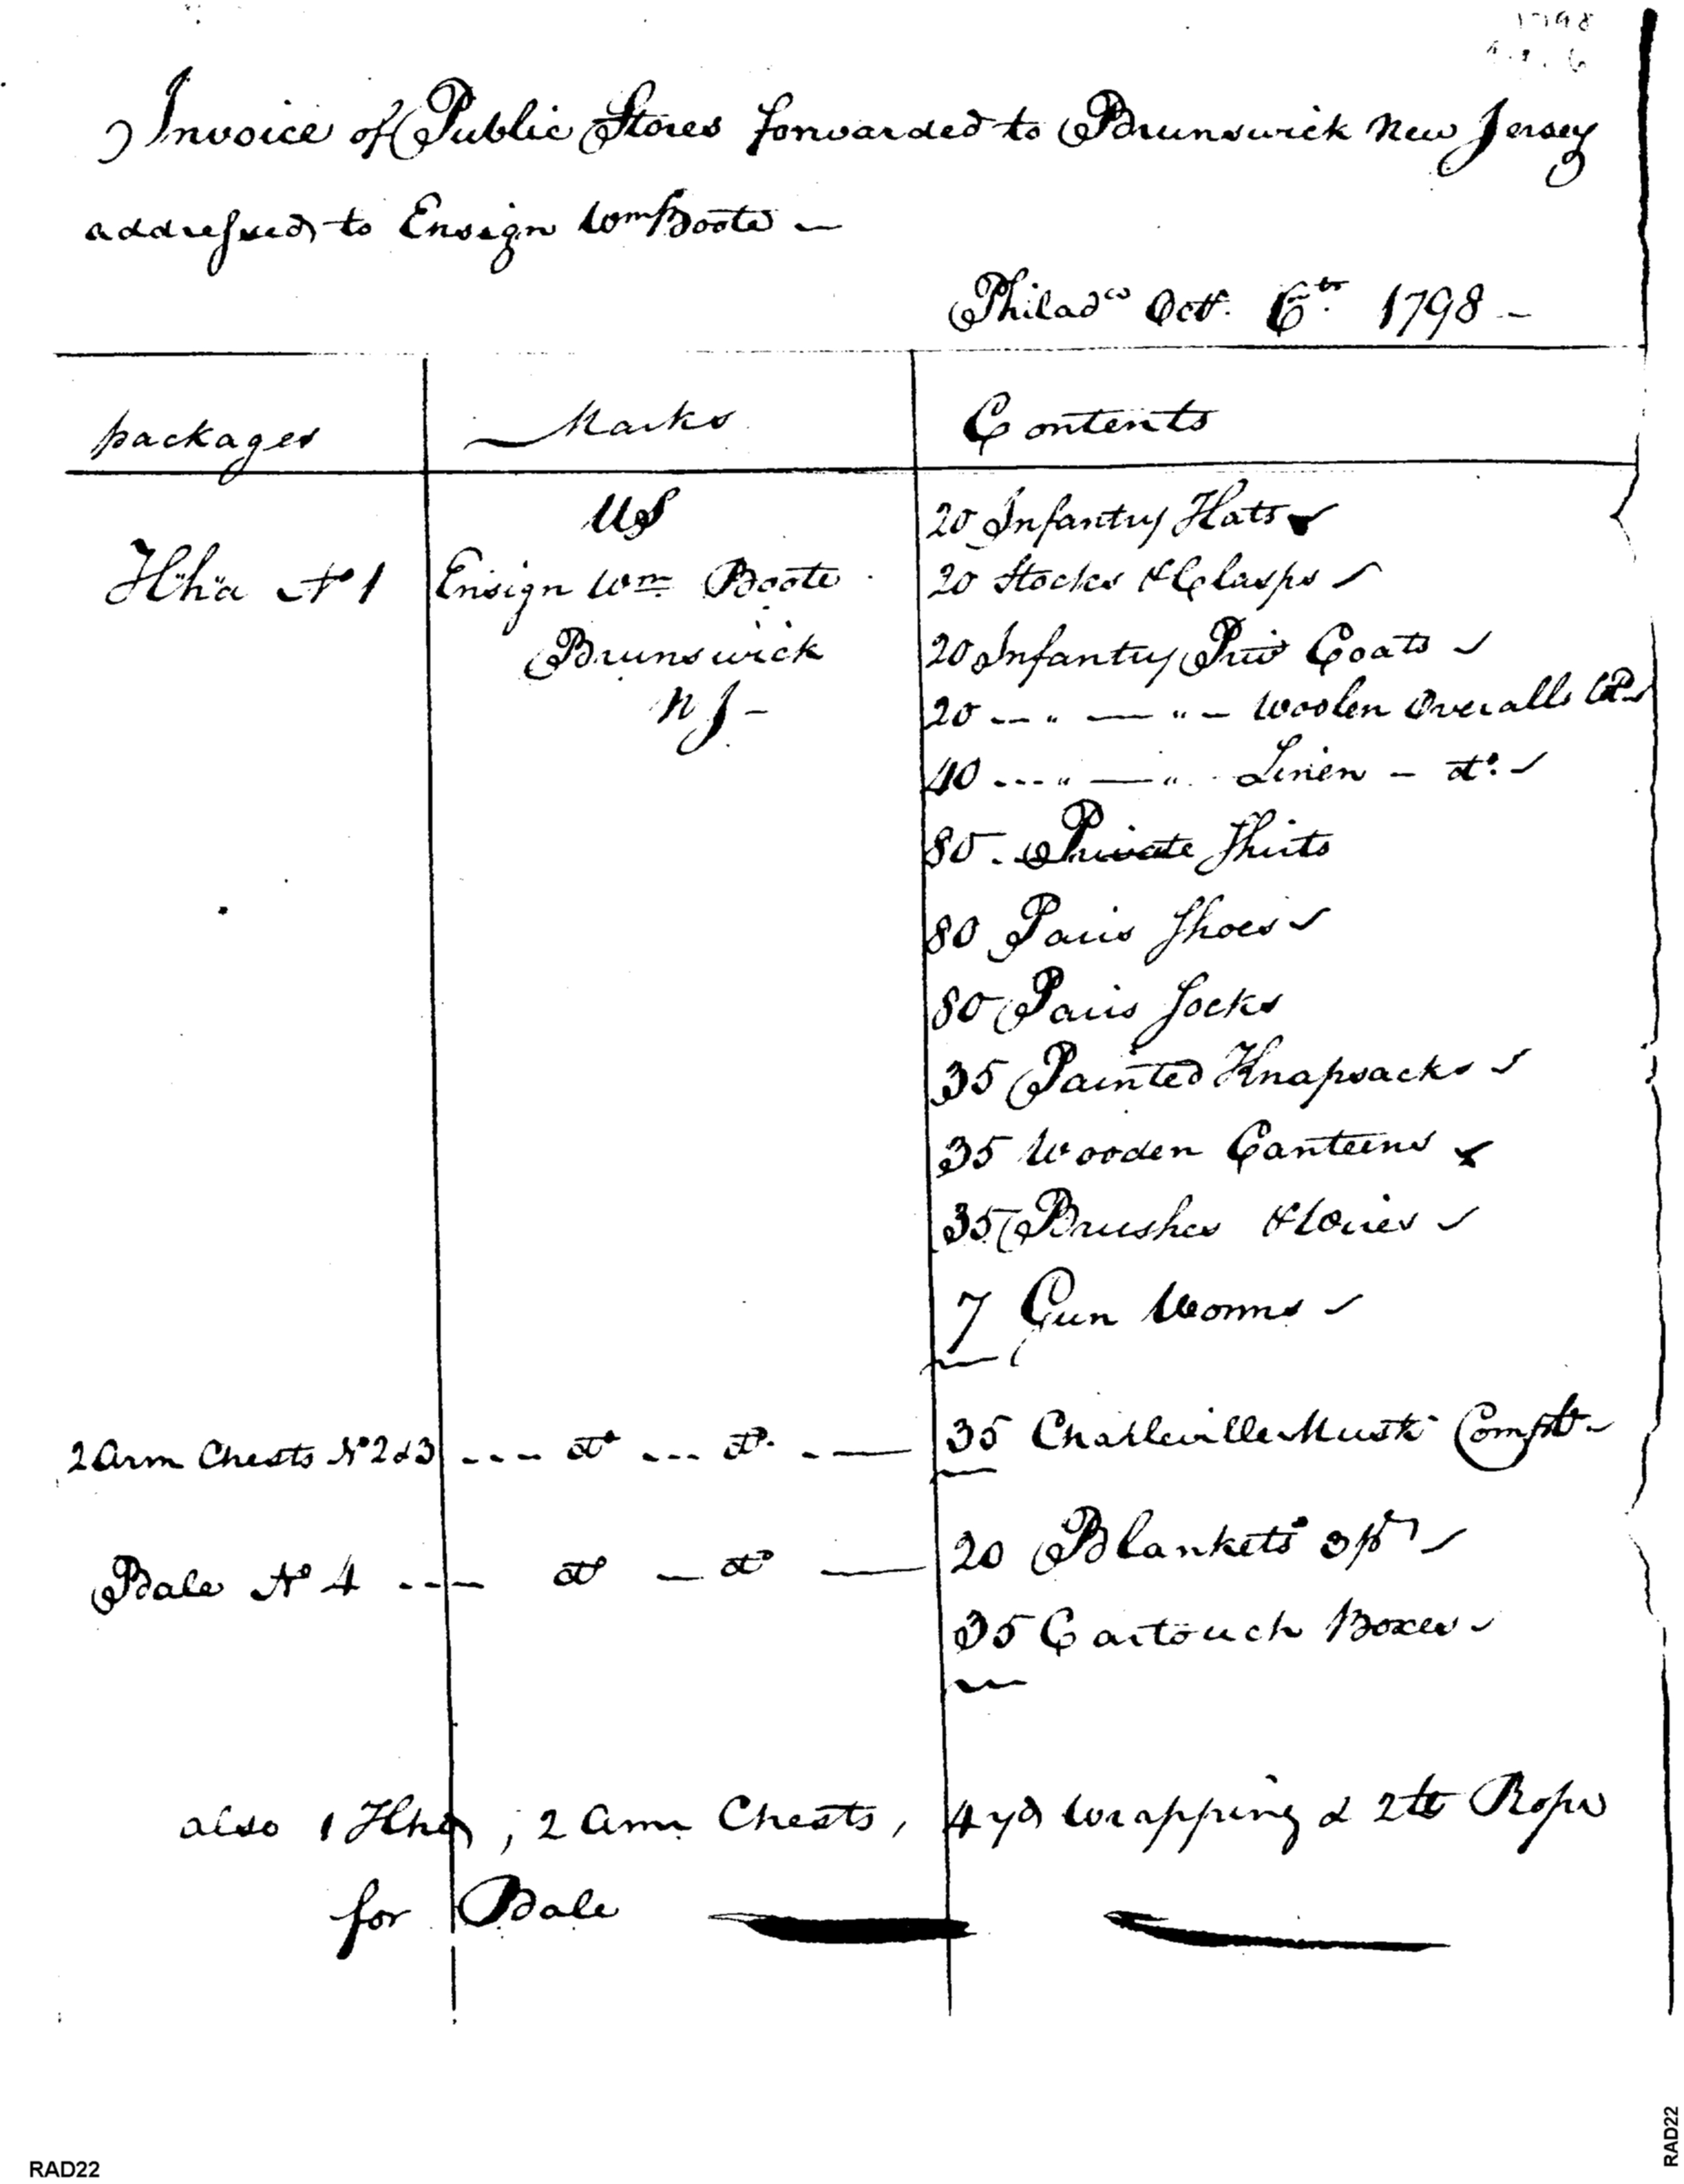 1798
Invoice of Public Stores forwarded to Brunswick New Jersey
addressed to Ensign Wm Boote —
Philada Octr. 6th 1798 —
packages Marks Contents
US 20 Infantry Hats ✓
Hhd No 1 Ensign Wm Boote 20 Stocks & Clasps ✓
Brunswick 20 Infantry Priv Coats ✓
NJ — 20 — " — " — Woolen Overalls
40 --- " — " Linen — do. ✓
80 . Private Shirts
80 Pairs Shoes ✓
80 Pairs Socks
35 Painted Knapsacks ✓
35 Wooden Canteens ✓
35 Brushes & Wires ✓
7 Gun Worms ✓
2 Arm Chests No 2 & 3 ---- do --- do. - — 35 Charleville Muskts Complt ✓
Bale No 4 ---- do — do — 20 Blankets 3 pt ✓
35 Cartouch Boxes ✓
also 1 Hhd , 2 Arm Chests , 4 yds wrapping & 2 lb Rope
for Bale
RAD22
RAD22